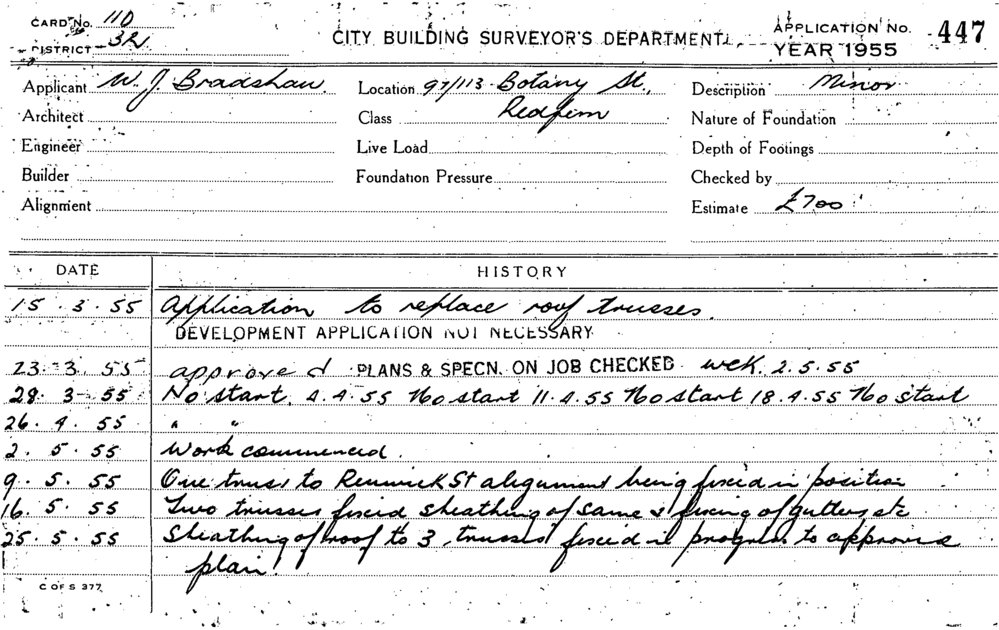 CARD No. 110
DISTRICT 32
CITY BUILDING SURVEYOR'S DEPARTMENT.
APPLICATION No. 447
YEAR 1955
Applicant W. J. Bradshaw. Location 97/113 Botany St., Description Minor
Architect Class Redfern Nature of Foundation
Engineer Live Load Depth of Footings
Builder Foundation Pressure Checked by
Alignment Estimate £700
DATE HISTORY
15.3.55 Application to replace roof trusses.
DEVELOPMENT APPLICATION NOT NECESSARY
23.3.55 approved PLANS & SPECN. ON JOB CHECKED 2.5.55
28.3.55 No start. 4.4.55 No start 11.4.55 No start 18.4.55 No start
26.4.55 " "
2.5.55 Work commenced.
9.5.55 One truss to Renwick St alignment being fixed in position
16.5.55 Two trusses fixed sheathing of same & fixing of gutters etc
25.5.55 Sheathing of roof to 3 trusses fixed in progress to approved
plan.
C OF S 377